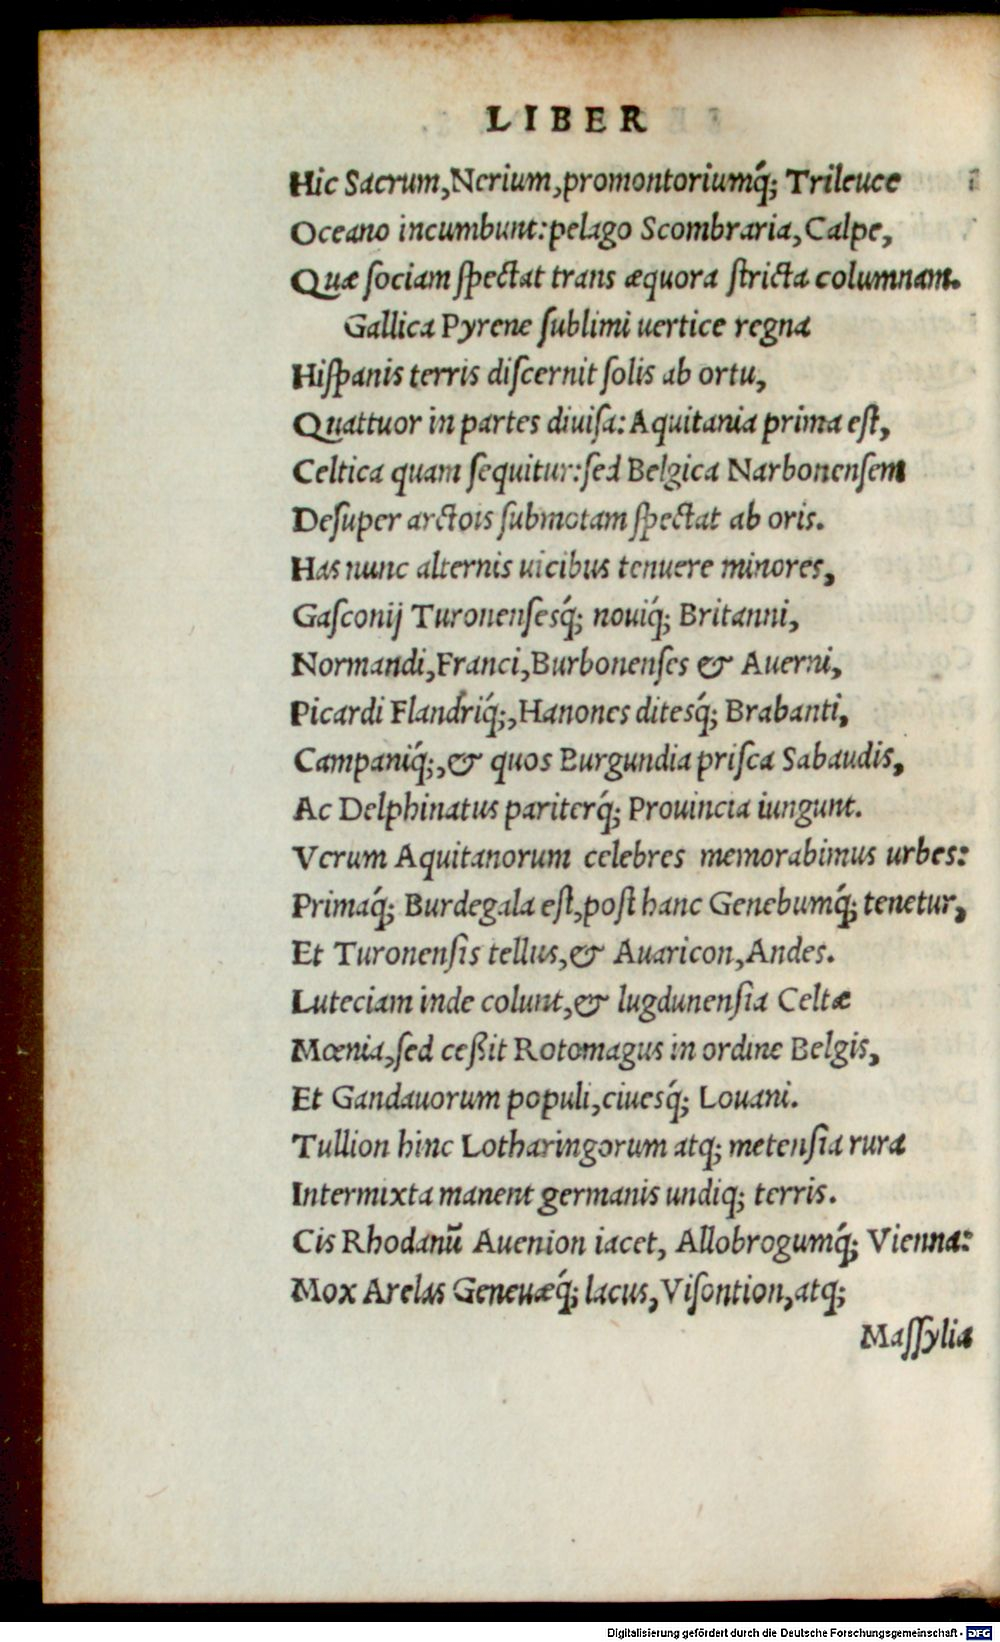 LIBER
Hic Sacrum, Nerium, promontoriumq́; Trileuce
Oceano incumbunt: pelago Scombraria, Calpe,
Quæ ſociam ſpectat trans æquora ſtricta columnam.
Gallica Pyrene ſublimi uertice regna
Hiſpanis terris diſcernit ſolis ab ortu,
Quattuor in partes diuiſa: Aquitania prima eſt,
Celtica quam ſequitur: ſed Belgica Narbonenſem
Deſuper arctois ſubmotam ſpectat ab oris.
Has nunc alternis uicibus tenuere minores,
Gaſconij Turonenſesq́; nouiq́; Britanni,
Normandi, Franci, Burbonenſes & Auerni,
Picardi Flandriq́;, Hanones ditesq́; Brabanti,
Campaniq́;, & quos Burgundia priſca Sabaudis,
Ac Delphinatus pariterq́; Prouincia iungunt.
Verum Aquitanorum celebres memorabimus urbes:
Primaq́; Burdegala eſt, poſt hanc Genebumq́; tenetur,
Et Turonenſis tellus, & Auaricon, Andes.
Luteciam inde colunt, & lugdunenſia Celtæ
Mœnia, ſed ceßit Rotomagus in ordine Belgis,
Et Gandauorum populi, ciuesq́; Louani.
Tullion hinc Lotharingorum atq; metenſia rura
Intermixta manent germanis undiq; terris.
Cis Rhodanū Auenion iacet, Allobrogumq́; Vienna:
Mox Arelas Geneuæq́; lacus, Viſontion, atq;
Maſſylia
Digitalisierung gefördert durch die Deutsche Forschungsgemeinschaft - DFG